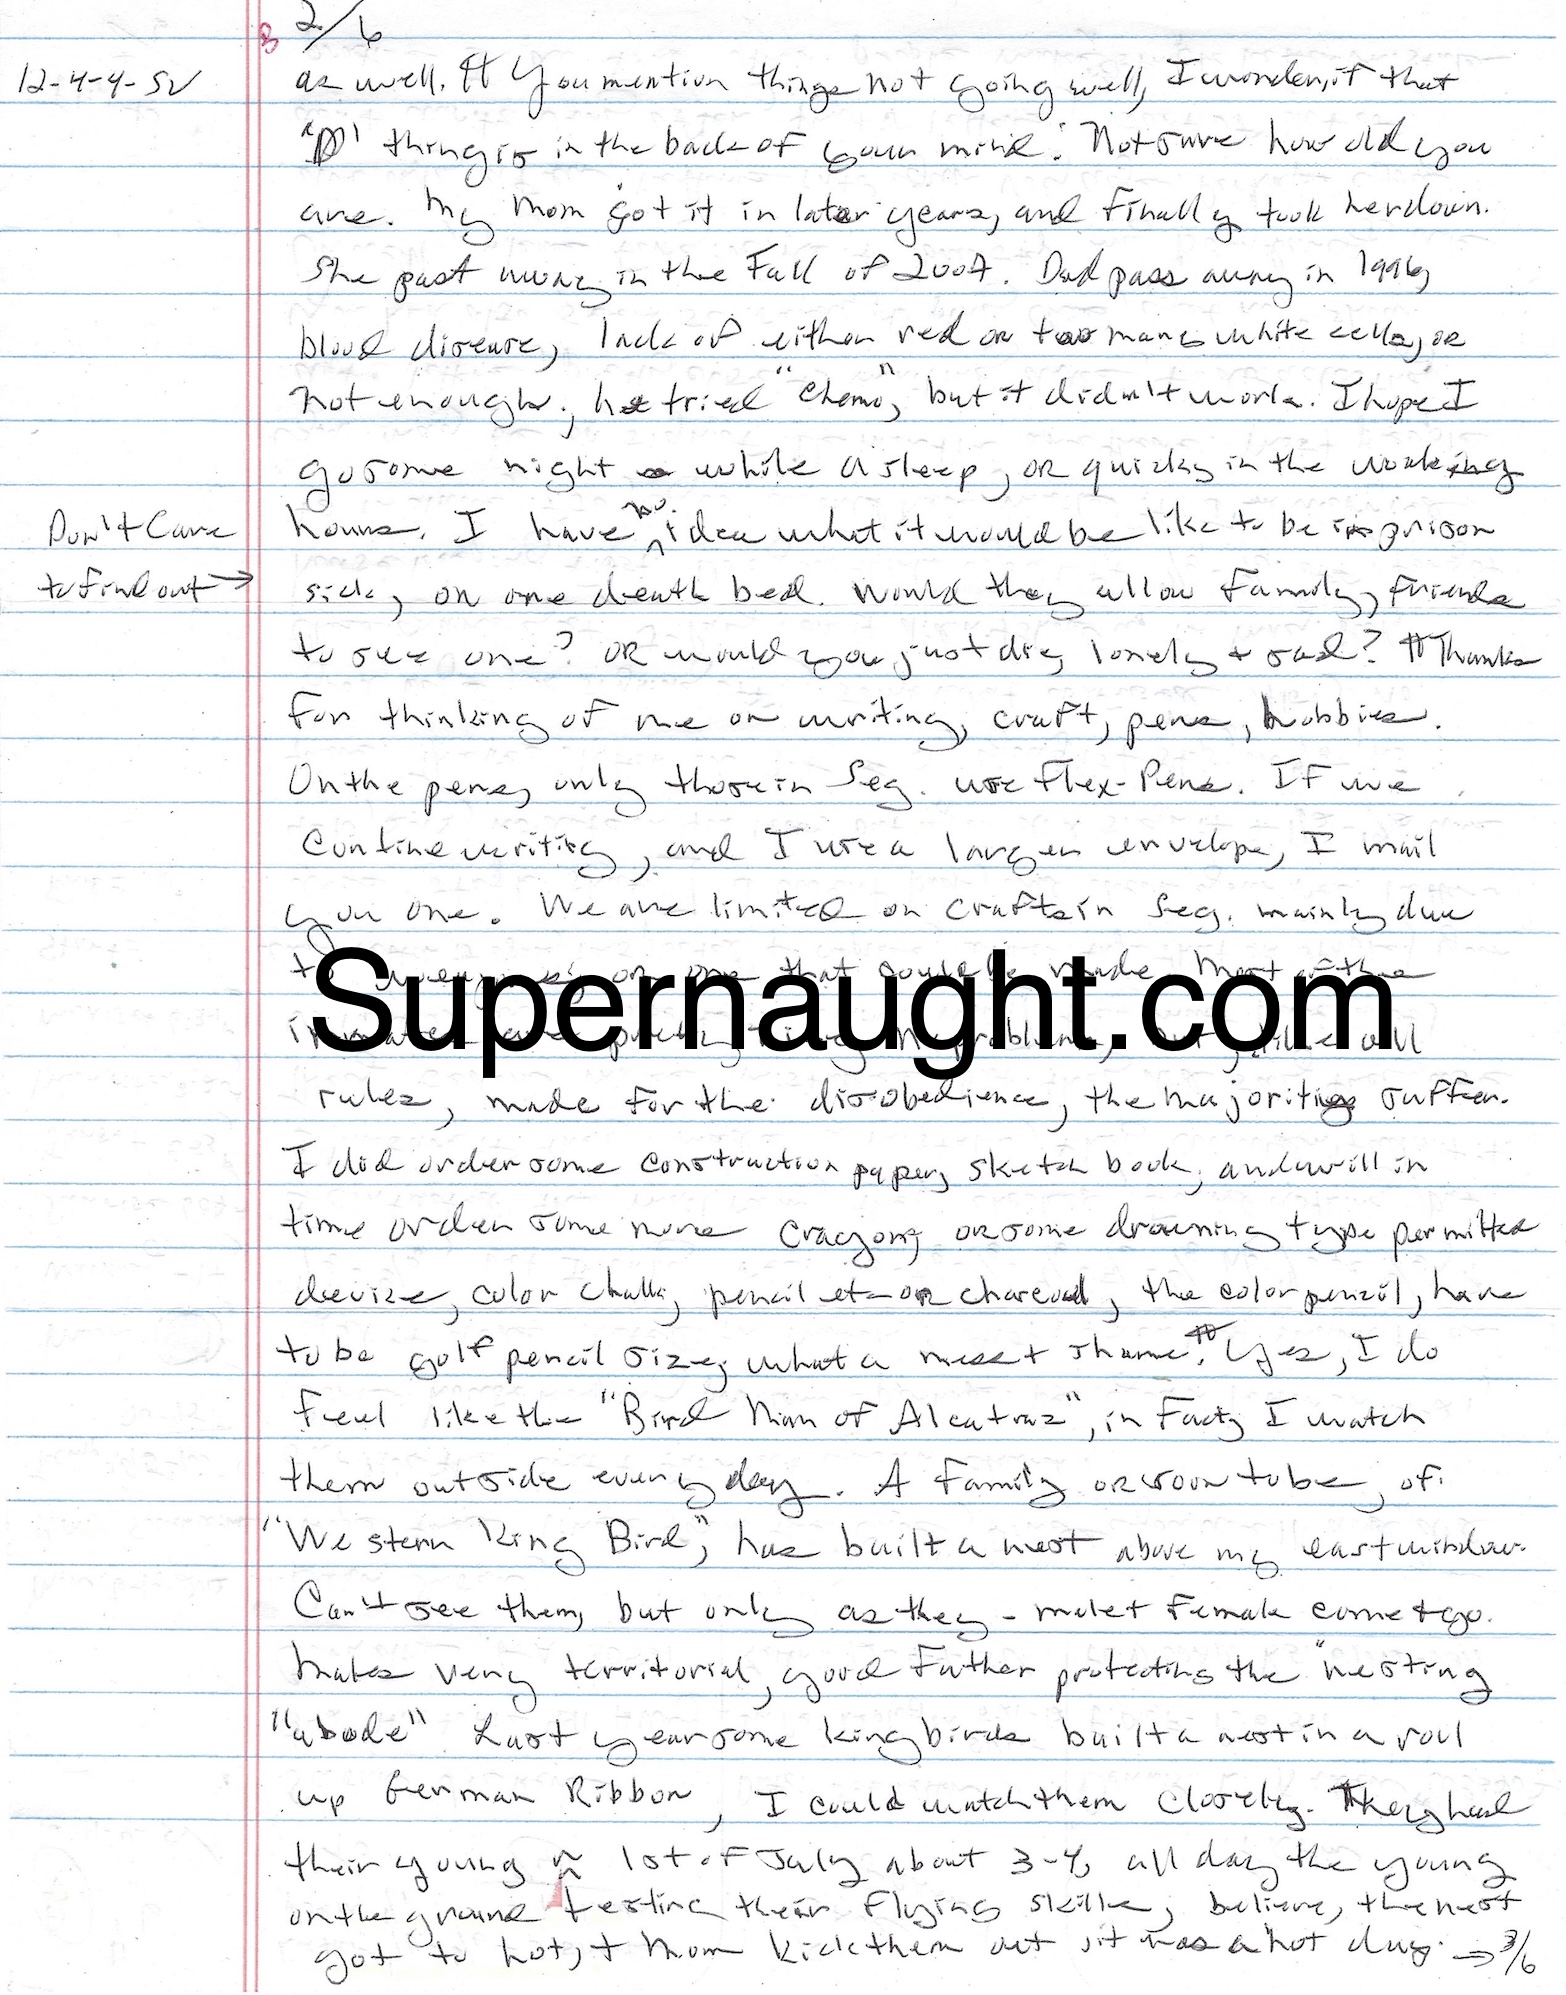 2/6
12-4-4-SV
as well. ¶ You mention things not going well, I wonder, if that
"D" thing is in the back of your mind. Not sure how old you
are. My Mom got it in later years, and finally took her down.
She past away in the Fall of 2007. Dad pass away in 1996,
blood disease, lack of either red or too many white cells, or
not enough, he tried "Chemo", but it didn't work. I hope I
go some night while asleep, or quickly in the working
hours. I have no idea what it would be like to be in prison
Don't Care
to find out →
sick, on one death bed. Would they allow family, friends
to see one? OR would you just die, lonely + sad? ¶ Thanks
for thinking of me on writing, craft, pens, hobbies.
On the pens, only those in Seg. use Flex-Pens. If we
contine writing, and I use a larger envelope, I mail
you one. We are limited on crafts in Seg. mainly due
to or one that could be made. Most of the
Supernaught.com
inmates are pretty problem, all
rules, made for the disobedience, the majoriting suffer.
I did order some construction paper, sketch book, and will in
time order some more crayons or some drawing type permitted
devize, color chalk, pencil etc or charcoal, the color pencil, have
to be golf pencil size, what a mess + shame. ¶ Yes, I do
feel like the "Bird Man of Alcatraz", in fact, I watch
them outside every day. A family or soon to be, of
"Western King Bird", has built a nest above my east window.
Can't see them, but only as they - male + female come + go.
Males very territorial, good father protecting the "nesting
"abode" Last year some kingbirds built a nest in a roll
up German Ribbon, I could watch them closely. They had
their young 1st of July about 3-4, all day the young
on the ground testing their flying skills, believe, the nest
got to hot, + Mom kick them out it was a hot day. → 3/6